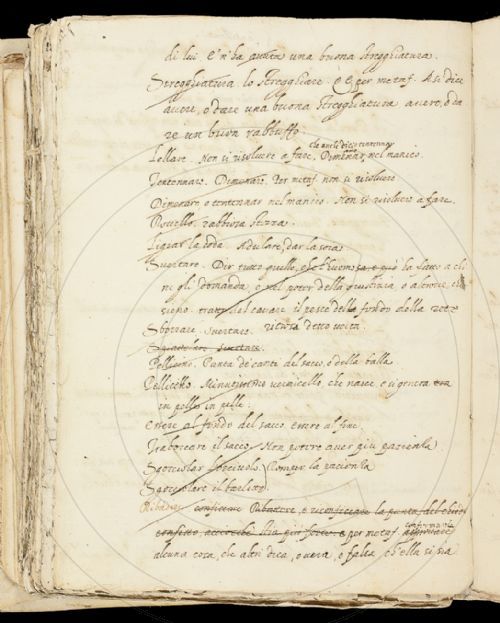 di lui e n'ha avuta una buona stregghiatura.
Stregghiatura lo stregghiare: e per metaf. Si dice
avere, o dare una buona stregghiatura avere, o da
re un buon rabbuffo
che anche dicesi tentennar
Lellare. Non si risolvere a fare. Dimenar nel manico.
Tentennare. Dimenare. Per metaf. non si risolvere
Dimenare, o tentennar nel manico. Non si risolvere a fare.
Rovello. rabbiosa stizza
Ligar la coda. Adulare, dar la soia
Svertare. Dir tutto quello, che l'uom sa, e ha fatto a chi
ne gli domanda, o nel poter della giustizia o altrove, che
sieno. del cavare il pesce del fondo della rete
Sborrare. Svertare.
Pellicino. Punta de' canti del sacco, o della balla
Pellicello. Minutissimo vermicello, che nasce, e si genera
in pelle in pelle
Essere al fondo del sacco. essere al fine
Traboccare il sacco. Non potere aver più pazienza
Sgocciolar l'orciuolo. Romper la pazienza
Sgocciolare il barlotto.
Ribadire. Ribadere, e riconficcare la punta del chiodo
confitto, acciocchè stia più forte. e per metaf.
alcuna cosa, che altri dica, o vera, o falsa, ch'ella si sia